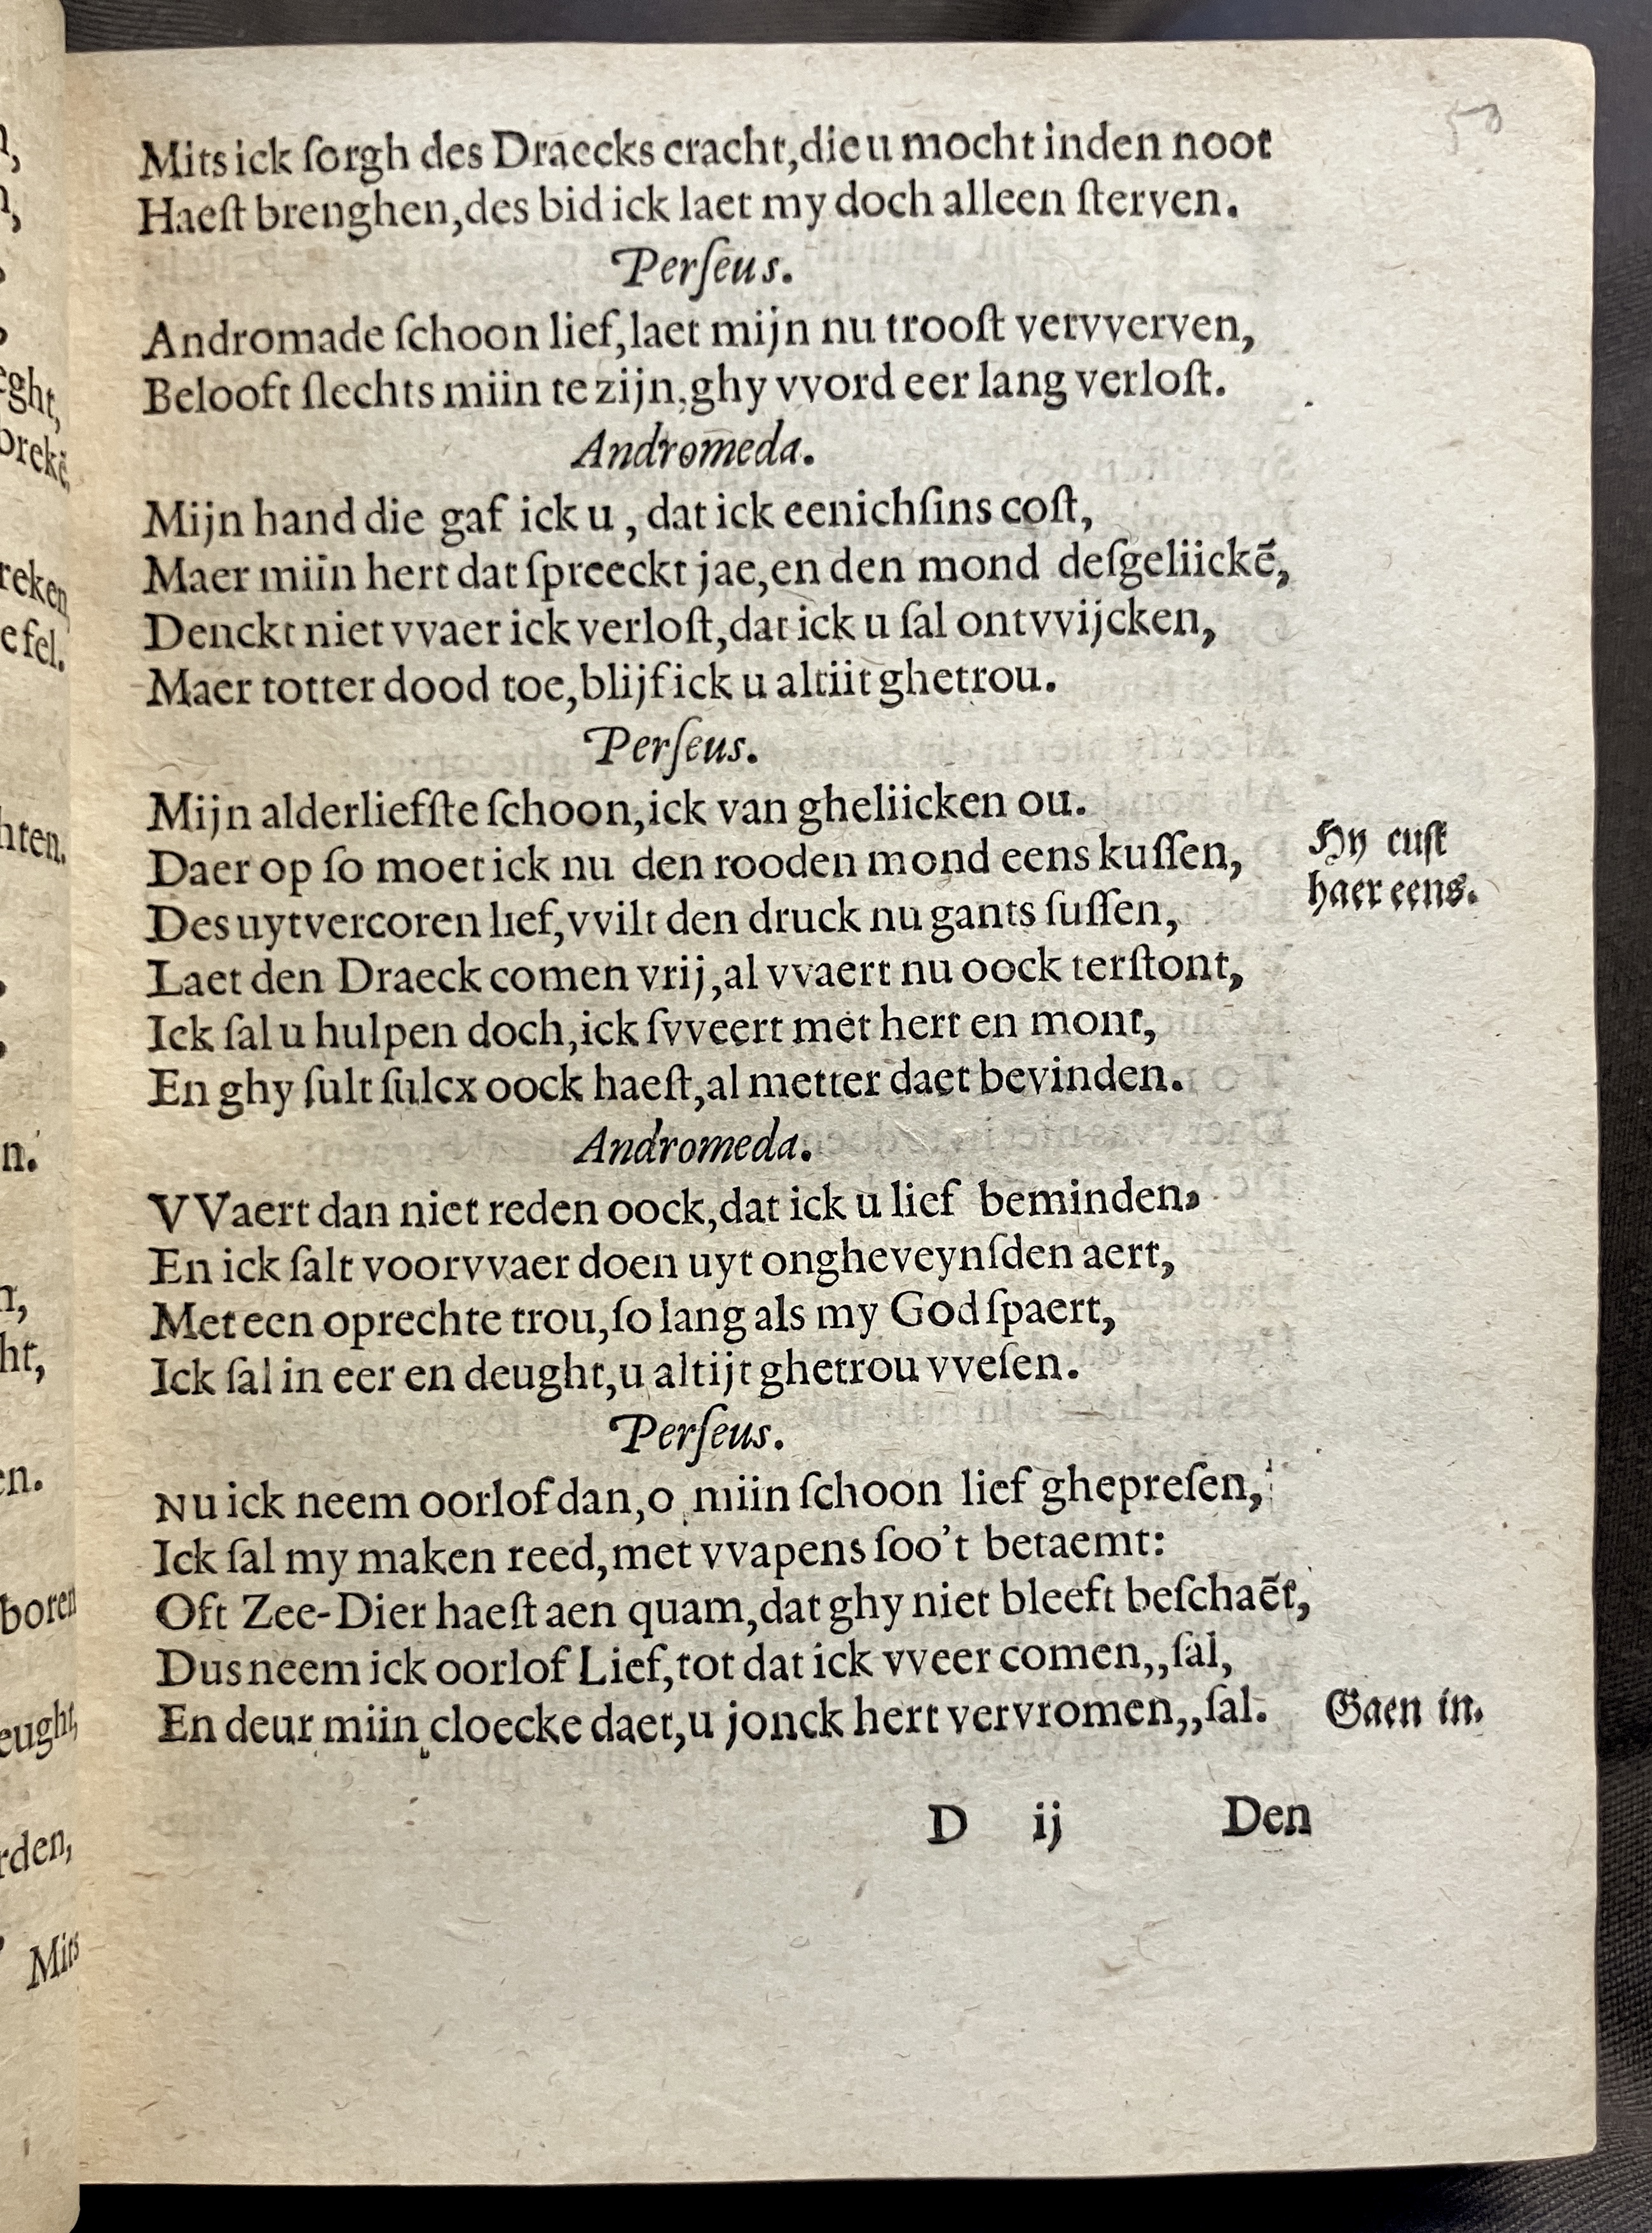 50
Mits ick ſorgh des Draecks cracht, die u mocht inden noot
Haeſt brenghen, des bid ick laet my doch alleen ſterven.
Perſeus.
Andromade ſchoon lief, laet mijn nu trooſt vervverven,
Belooft ſlechts miin te zijn, ghy vvord eer lang verloſt.
Andromeda.
Mijn hand die gaf ick u, dat ick eenichſins coſt,
Maer miin hert dat ſpreeckt jae, en den mond deſgeliickē,
Denckt niet vvaer ick verloſt, dat ick u ſal ontvvijcken,
Maer totter dood toe, blijf ick u altiit ghetrou.
Perſeus.
Mijn alderliefſte ſchoon, ick van gheliicken ou.
Daer op ſo moet ick nu den rooden mond eens kuſſen,
Hy cuſt
haer eens.
Des uytvercoren lief, vvilt den druck nu gants ſuſſen,
Laet den Draeck comen vrij, al vvaert nu oock terſtont,
Ick ſal u hulpen doch, ick ſvveert met hert en mont,
En ghy ſult ſulcx oock haeſt, al metter daet bevinden.
Andromeda.
VVaert dan niet reden oock, dat ick u lief beminden,
En ick ſalt voorvvaer doen uyt ongheveynſden aert,
Met een oprechte trou, ſo lang als my God ſpaert,
Ick ſal in eer en deught, u altijt ghetrou vveſen.
Perſeus.
Nu ick neem oorlof dan, o miin ſchoon lief ghepreſen,
Ick ſal my maken reed, met vvapens ſoo't betaemt:
Oft Zee-Dier haeſt aen quam, dat ghy niet bleeft beſchaēt,
Dus neem ick oorlof Lief, tot dat ick vveer comen,, ſal,
En deur miin cloecke daet, u jonck hert vervromen,, ſal.
Gaen in.
D ij
Den
eght,
orekē,
reken
efel.
hten.
boren
eught,
rden,
Mits